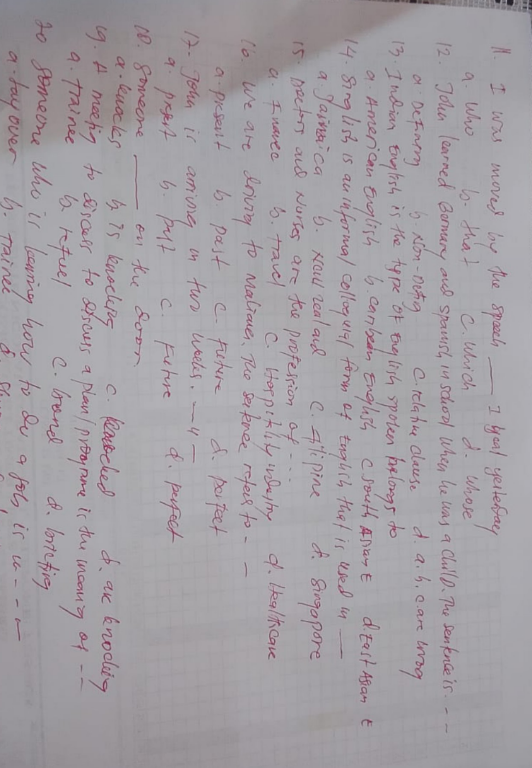 11. I was moved by the speech ____ I gat yesterday
a. Who b. that c. which d. whose
12. John learned Germany and Spanish, in school when he was a child. The sentence is. - -
a Defining b Non-defing c. relative clause d. a, b, c are wrong
13, Indian English is the type of English spoken belongs to
a. American English b. carbean English c South Asian E d East Asian E
14. Singlish is an informal colloquial form of English that is used in ___
a Jamaica b. New zealand c. filipine d. Singapore
15. Doctors and Nurses are the profession of - - -
a. Finance b. travel c. Hospitality industry d. Healthcare
16. We are driving to Madinue. The sentence refers to - - -
a. present b. past c. future d. perfect
17. John is arriving in two weeks. — " —
a present b. past c. future d. perfect
18. Someone ____ on the door
a. knocks b. is knocking c. knocked d. are knocking
19. A meeting to discuss to discuss a plan/programe is the meaning of - -
a. trainee b. refuel c. brand d. briefing
20 Someone who is learning how to do a job is a - - -
b. Trainee